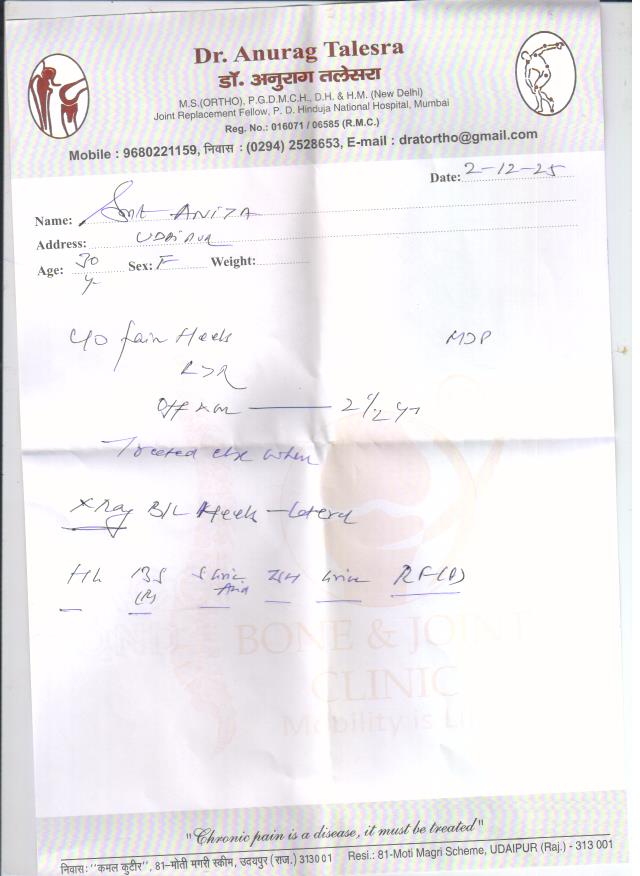 Dr. Anurag Talesra
डॉ. अनुराग तलेसरा
M.S.(ORTHO), P.G.D.M.C.H., D.H. & H.M. (New Delhi)
Joint Replacement Fellow, P. D. Hinduja National Hospital, Mumbai
Reg. No.: 016071 / 06585 (R.M.C.)
Mobile : 9680221159, निवास : (0294) 2528653, E-mail : dratortho@gmail.com
Date: 2-12-25
Name: Smt ANITA
Address: UDAIPUR
Age: 30 y Sex: F Weight:
C/O Pain Heels
MDP
Off & on — 2 1/2 yr
Treated else where
X Ray B/L Heels - Lateral
Hb BS S Uric Acid ESR Urine RF(Q)
(R)
BONE & JOINT
CLINIC
Mobility is Li
"Chronic pain is a disease, it must be treated"
निवास: "कमल कुटीर", 81-मोती मगरी स्कीम, उदयपुर (राज.) 313001 Resi.: 81-Moti Magri Scheme, UDAIPUR (Raj.) - 313 001